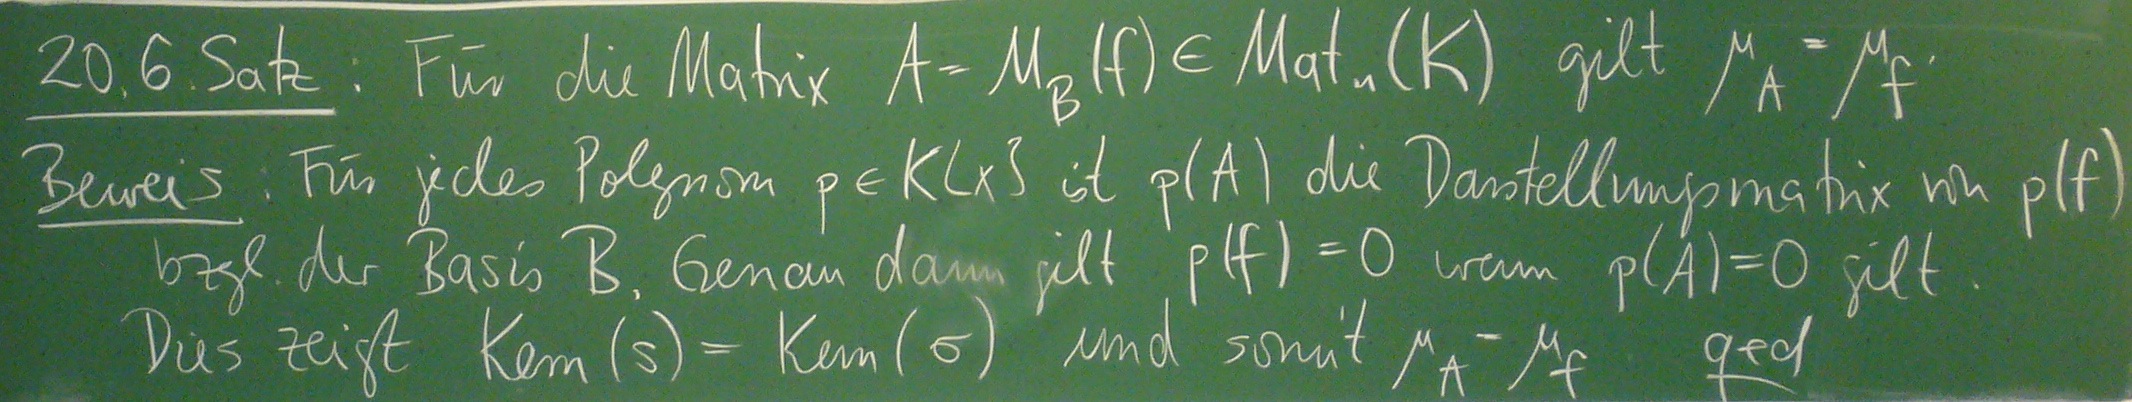 20.6. Satz: Für die Matrix A = M_B(f) ∈ Mat_n(K) gilt μ_A = μ_f.
Beweis: Für jedes Polynom p ∈ K[X] ist p(A) die Darstellungsmatrix von p(f)
bzgl. der Basis B. Genau dann gilt p(f) = 0 wenn p(A) = 0 gilt.
Dies zeigt Kern(s) = Kern(σ) und somit μ_A = μ_f qed